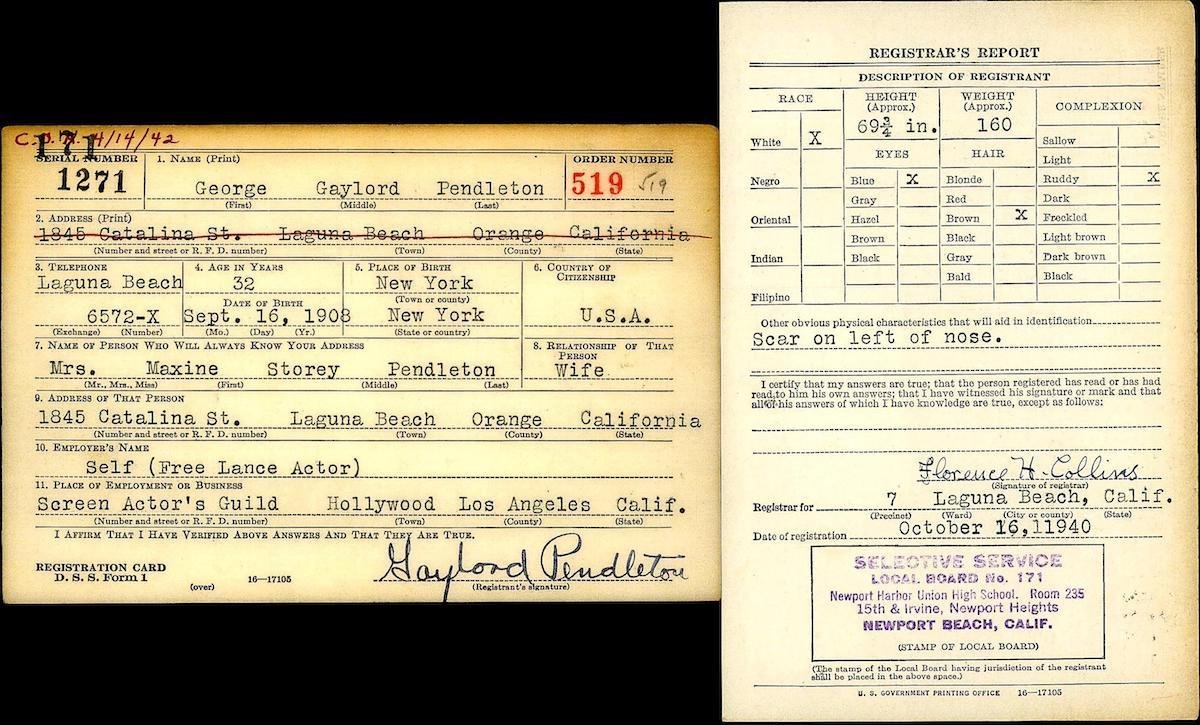 C.O.A. 4/14/42
171
SERIAL NUMBER 1. NAME (Print) ORDER NUMBER
1271 George Gaylord Pendleton 519 519
(First) (Middle) (Last)
2. ADDRESS (Print)
1845 Catalina St. Laguna Beach Orange California
(Number and street or R. F. D. number) (Town) (County) (State)
3. TELEPHONE 4. AGE IN YEARS 5. PLACE OF BIRTH 6. COUNTRY OF CITIZENSHIP
Laguna Beach 32 New York
DATE OF BIRTH (Town or county)
6572-X Sept. 16, 1908 New York U.S.A.
(Exchange) (Number) (Mo.) (Day) (Yr.) (State or country)
7. NAME OF PERSON WHO WILL ALWAYS KNOW YOUR ADDRESS 8. RELATIONSHIP OF THAT PERSON
Mrs. Maxine Storey Pendleton Wife
(Mr., Mrs., Miss) (First) (Middle) (Last)
9. ADDRESS OF THAT PERSON
1845 Catalina St. Laguna Beach Orange California
(Number and street or R. F. D. number) (Town) (County) (State)
10. EMPLOYER'S NAME
Self (Free Lance Actor)
11. PLACE OF EMPLOYMENT OR BUSINESS
Screen Actor's Guild Hollywood Los Angeles Calif.
(Number and street or R. F. D. number) (Town) (County) (State)
I AFFIRM THAT I HAVE VERIFIED ABOVE ANSWERS AND THAT THEY ARE TRUE.
Gaylord Pendleton
REGISTRATION CARD
D. S. S. Form 1 (over) 16—17105 (Registrant's signature)
REGISTRAR'S REPORT
DESCRIPTION OF REGISTRANT
RACE HEIGHT (Approx.) WEIGHT (Approx.) COMPLEXION
69¾ in. 160
White X Sallow
EYES HAIR Light
Negro Blue X Blonde Ruddy X
Gray Red Dark
Oriental Hazel Brown X Freckled
Brown Black Light brown
Indian Black Gray Dark brown
Bald Black
Filipino
Other obvious physical characteristics that will aid in identification
Scar on left of nose.
I certify that my answers are true; that the person registered has read or has had
read to him his own answers; that I have witnessed his signature or mark and that
all of his answers of which I have knowledge are true, except as follows:
Florence H. Collins
(Signature of registrar)
Registrar for 7 Laguna Beach, Calif.
(Precinct) (Ward) (City or county) (State)
Date of registration October 16,11940
SELECTIVE SERVICE
LOCAL BOARD No. 171
Newport Harbor Union High School. Room 235
15th & Irvine, Newport Heights
NEWPORT BEACH, CALIF.
(STAMP OF LOCAL BOARD)
(The stamp of the Local Board having jurisdiction of the registrant
shall be placed in the above space.)
U. S. GOVERNMENT PRINTING OFFICE 16—17105